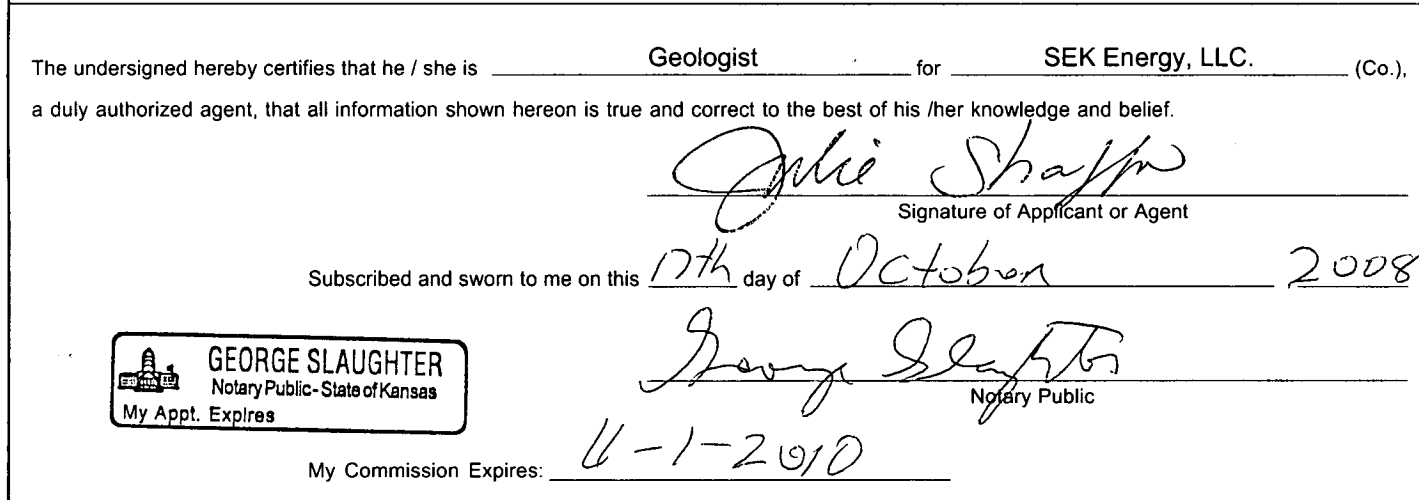 The undersigned hereby certifies that he / she is Geologist for SEK Energy, LLC. (Co.),
a duly authorized agent, that all information shown hereon is true and correct to the best of his /her knowledge and belief.
Julie Shaffer
Signature of Applicant or Agent
Subscribed and sworn to me on this 17th day of October 2008
GEORGE SLAUGHTER
Notary Public - State of Kansas
My Appt. Expires
George Slaughter
Notary Public
My Commission Expires: -1-2010